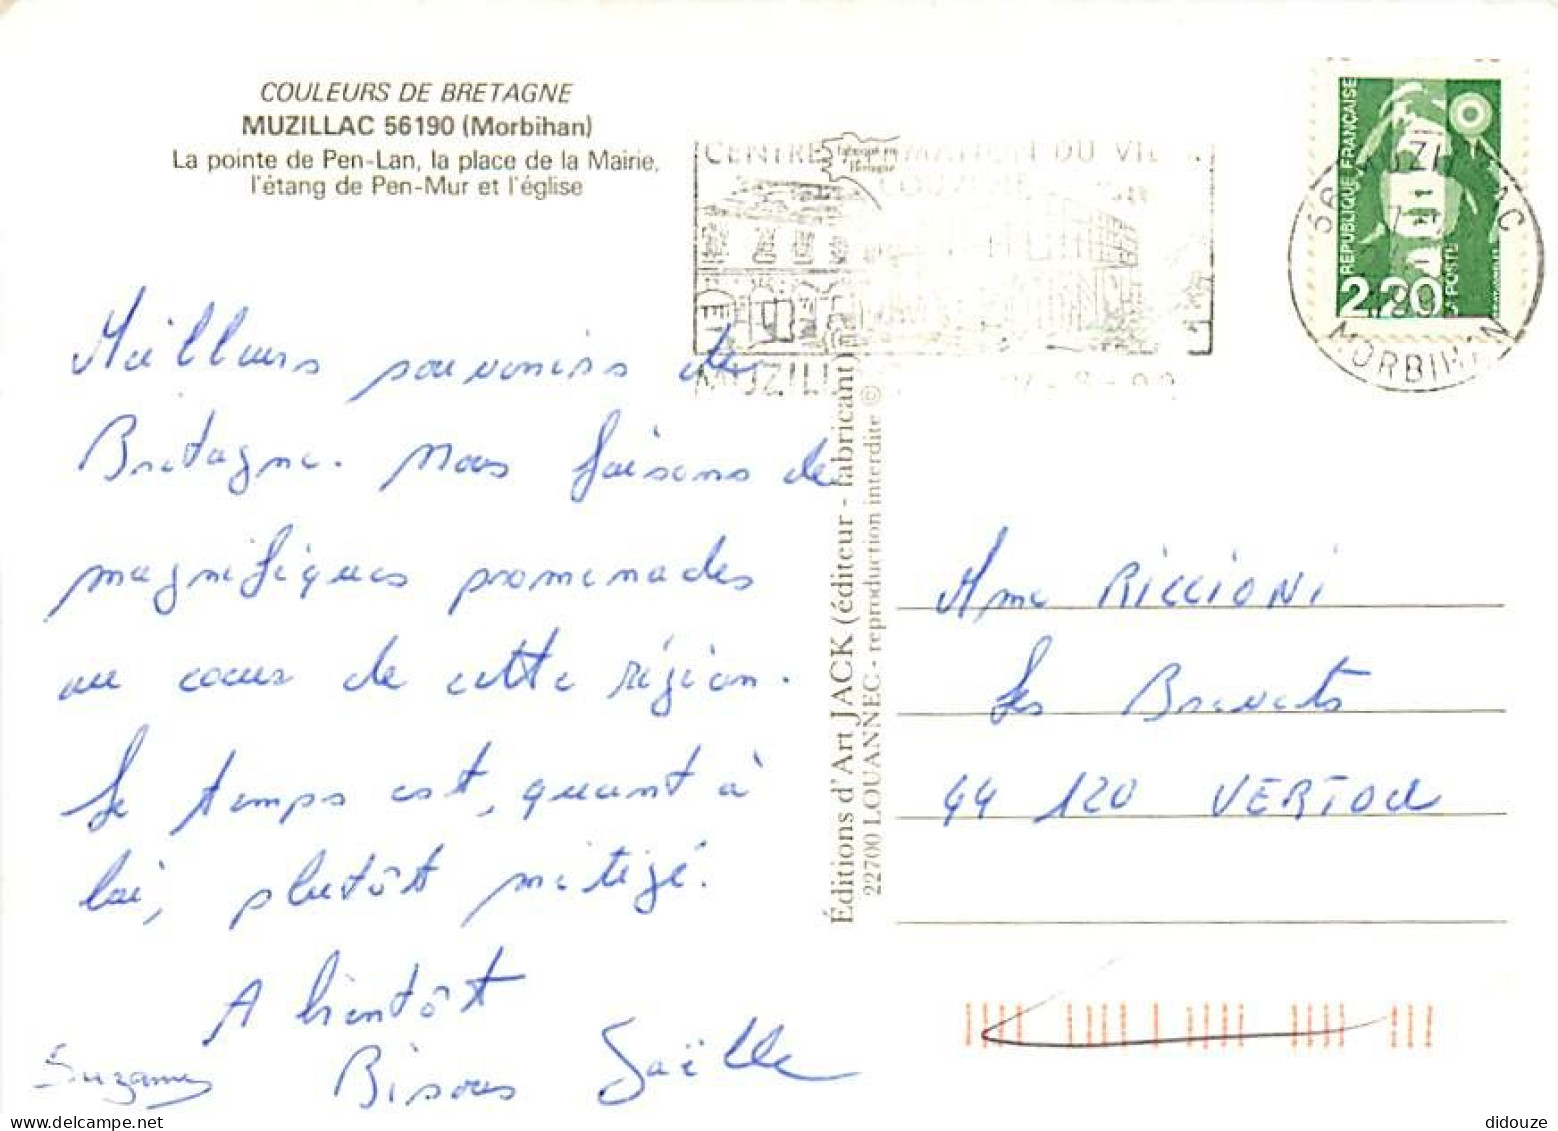 COULEURS DE BRETAGNE
MUZILLAC 56190 (Morbihan)
La pointe de Pen-Lan, la place de la Mairie,
l'étang de Pen-Mur et l'église
CENTRE
DU
MUZILL
56 MUZILLAC
MORBIHAN
RÉPUBLIQUE FRANÇAISE
2,20
POSTE
Meilleurs souvenirs de
Bretagne. Nous faisons de
magnifiques promenades
au cœur de cette région.
Le temps est, quant à
lui, plutôt mitigé.
A bientôt
Bisous Gaëlle
Suzanne
Éditions d'Art JACK (éditeur - fabricant)
22700 LOUANNEC - reproduction interdite ©
Mme RICCIONI
Les Brevets
44 120 VERTOU
didouze